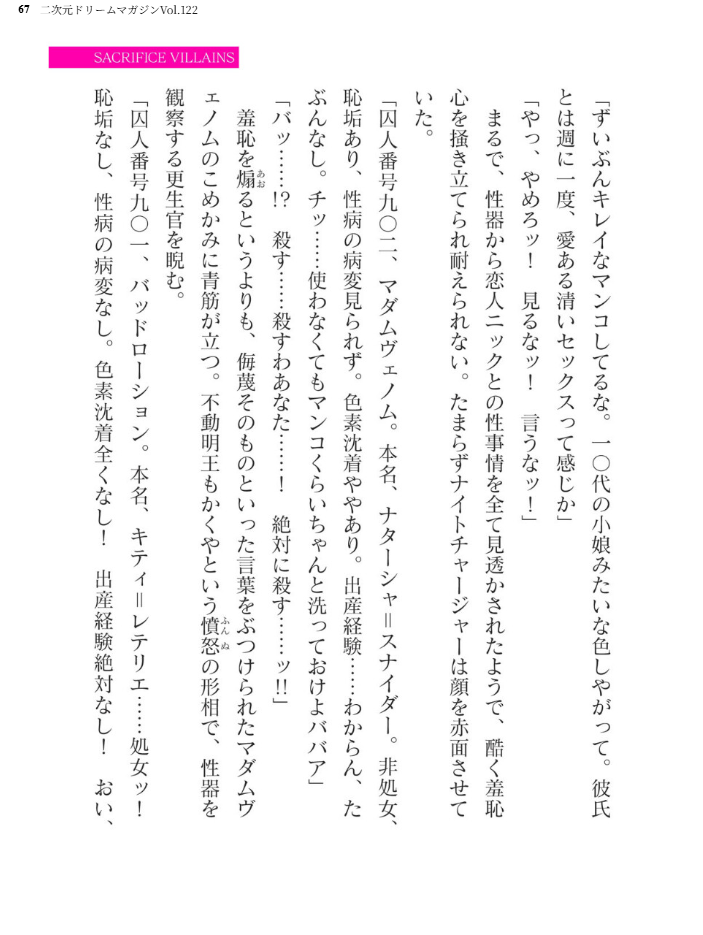 67 二次元ドリームマガジンVol.122
SACRIFICE VILLAINS
「ずいぶんキレイなマンコしてるな。一〇代の小娘みたいな色しやがって。彼氏
とは週に一度、愛ある清いセックスって感じか」
「やっ、やめろッ！　見るなッ！　言うなッ！」
　まるで、性器から恋人ニックとの性事情を全て見透かされたようで、酷く羞恥
心を掻き立てられ耐えられない。たまらずナイトチャージャーは顔を赤面させて
いた。
「囚人番号九〇二、マダムヴェノム。本名、ナターシャ＝スナイダー。非処女、
恥垢あり、性病の病変見られず。色素沈着ややあり。出産経験……わからん、た
ぶんなし。チッ……使わなくてもマンコくらいちゃんと洗っておけよババア」
「バッ……!?　殺す……殺すわあなた……！　絶対に殺す……ッ!!」
　羞恥を煽るというよりも、侮蔑そのものといった言葉をぶつけられたマダムヴ
ェノムのこめかみに青筋が立つ。不動明王もかくやという憤怒の形相で、性器を
観察する更生官を睨む。
「囚人番号九〇一、バッドローション。本名、キティ＝レテリエ……処女ッ！
恥垢なし、性病の病変なし。色素沈着全くなし！　出産経験絶対なし！　おい、